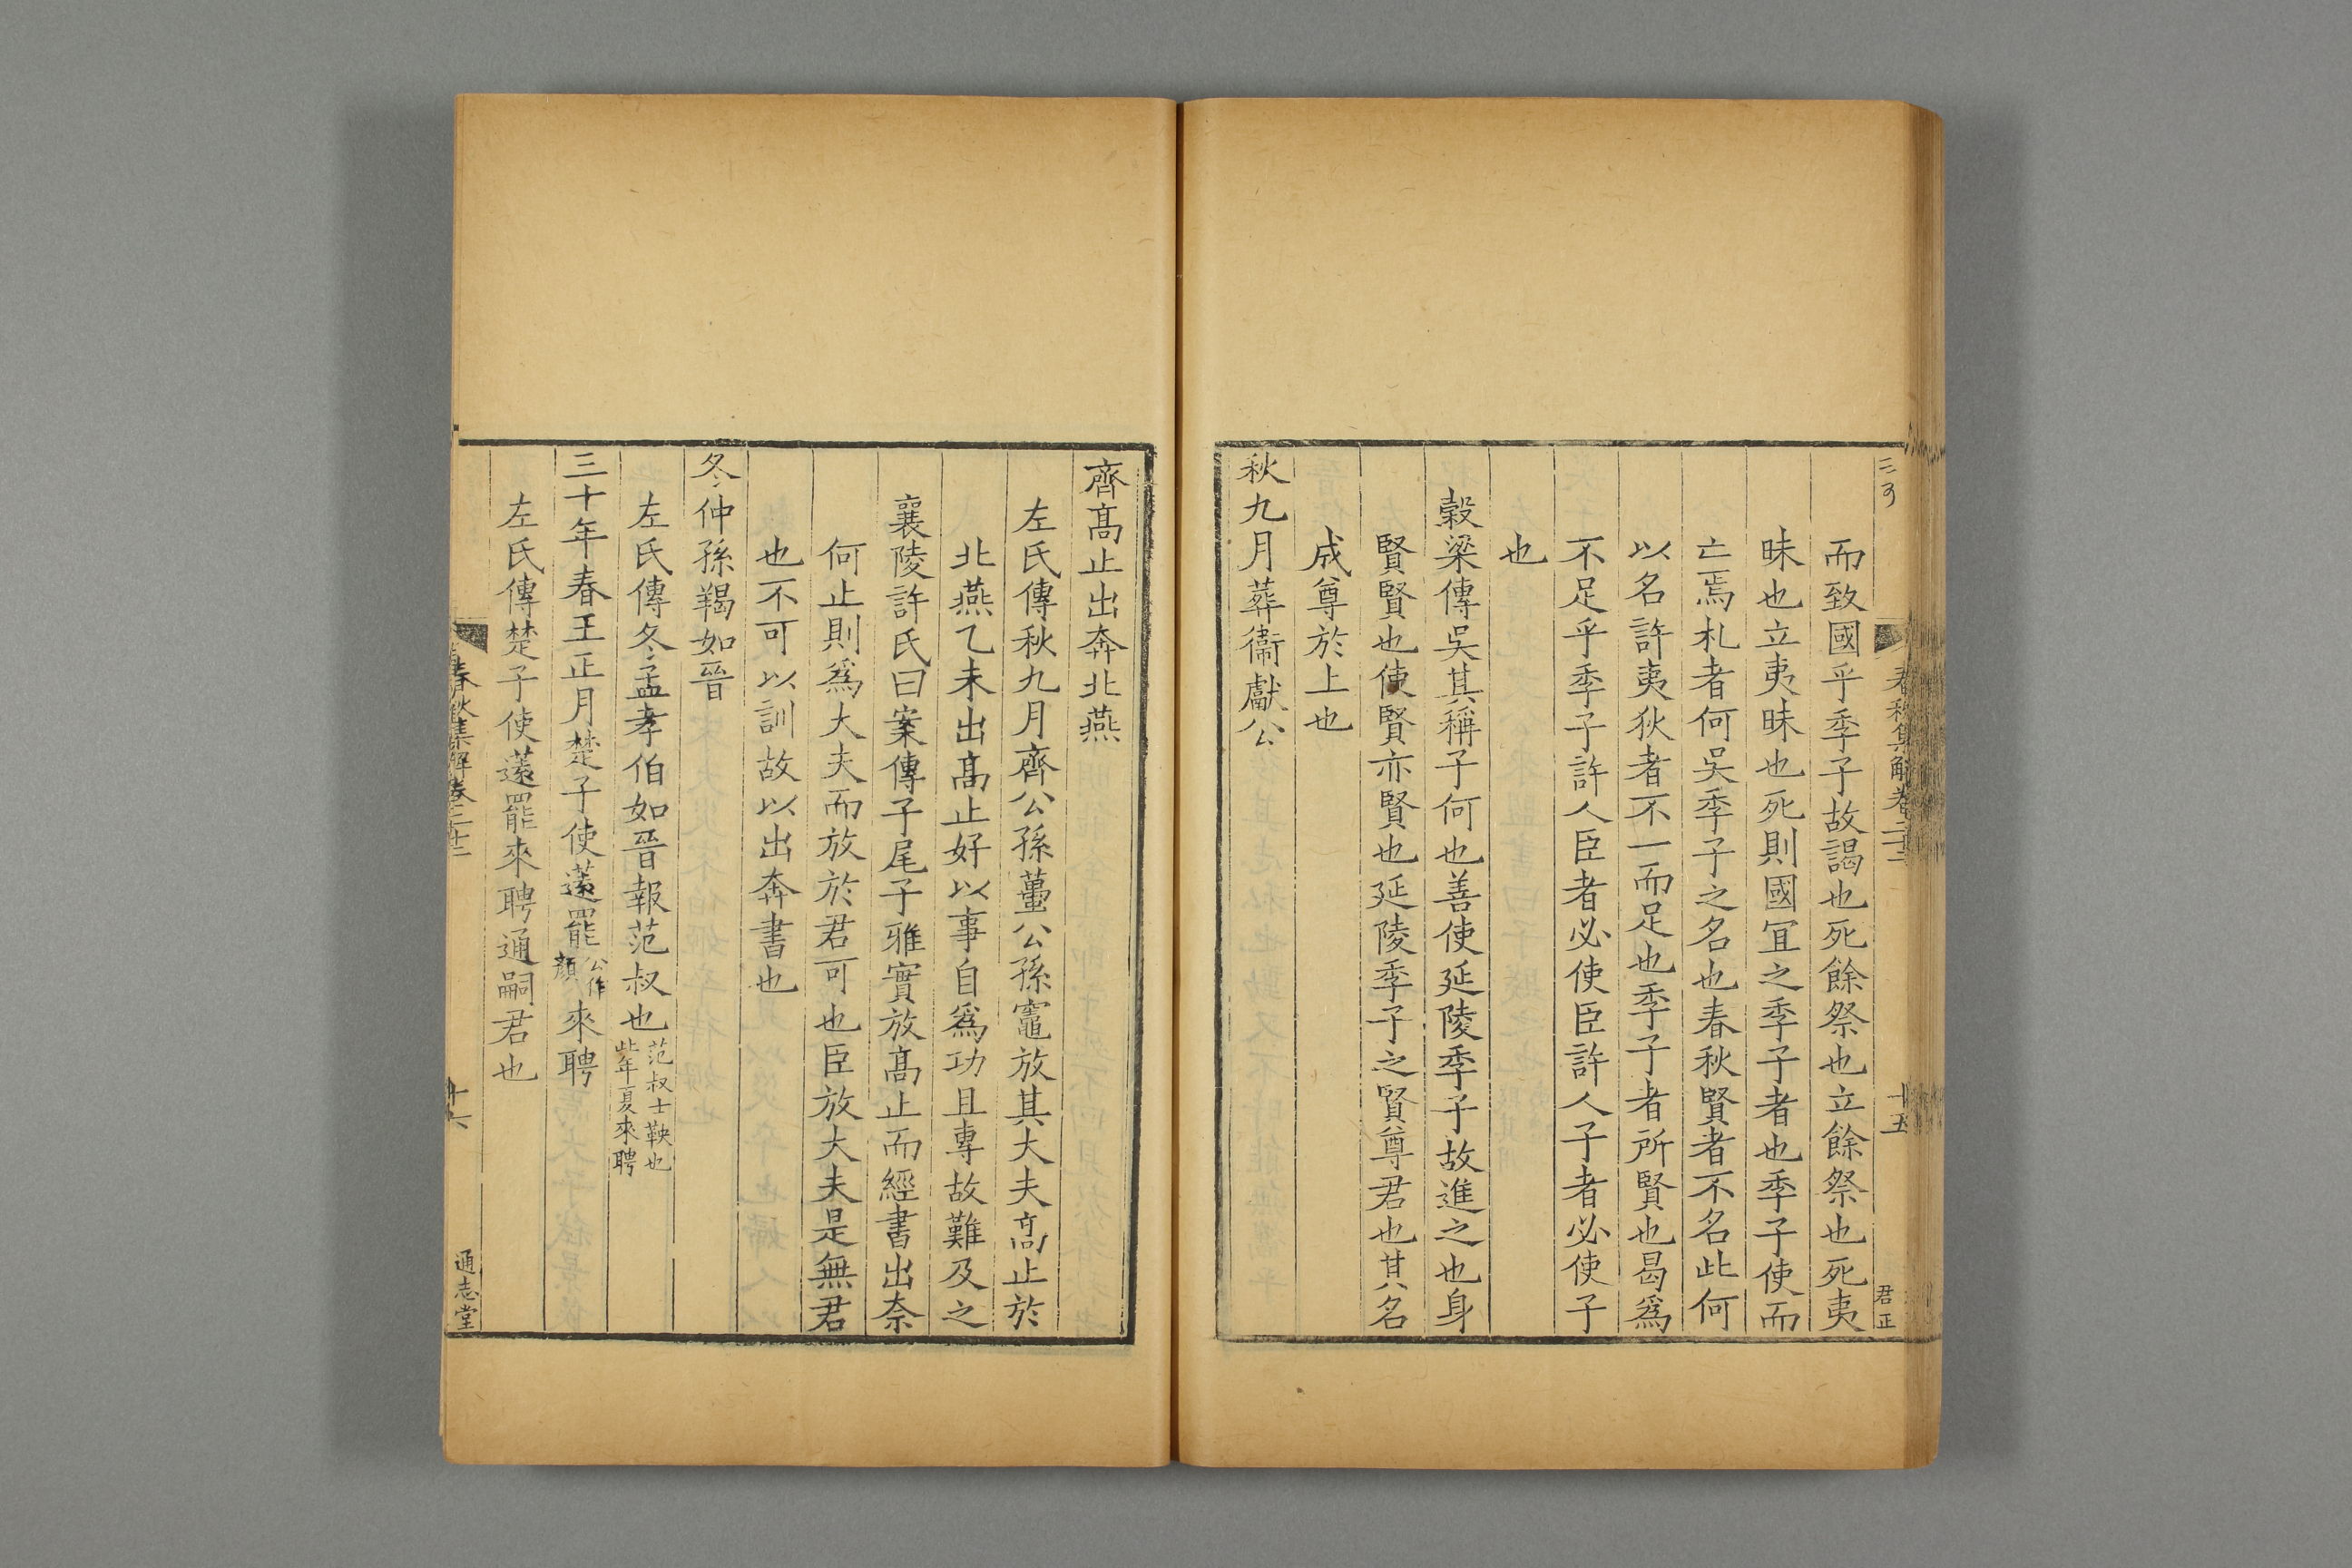 春秋集解卷二十二
十五
君正
而致國乎季子故謁也死餘祭也立餘祭也死夷
昧也立夷昧也死則國冝之季子者也季子使而
亡焉札者何吳季子之名也春秋賢者不名此何
以名許夷狄者不一而足也季子者所賢也曷爲
不足乎季子許人臣者必使臣許人子者必使子
也
榖梁傳吳其稱子何也善使延陵季子故進之也身
賢賢也使賢亦賢也延陵季子之賢尊君也其名
成尊於上也
秋九月葬衞獻公
齊髙止出奔北燕
左氏傳秋九月齊公孫蠆公孫竈放其大夫髙止於
北燕乙未出髙止好以事自爲功且專故難及之
襄陵許氏曰案傳子尾子雅實放髙止而經書出奔
何止則爲大夫而放於君可也臣放大夫是無君
也不可以訓故以出奔書也
冬仲孫羯如晉
左氏傳冬孟孝伯如晉報范叔也范叔士鞅也此年夏來聘
三十年春王正月楚子使薳罷公作頗來聘
左氏傳楚子使薳罷來聘通嗣君也
春秋集解卷二十二
十六
通志堂